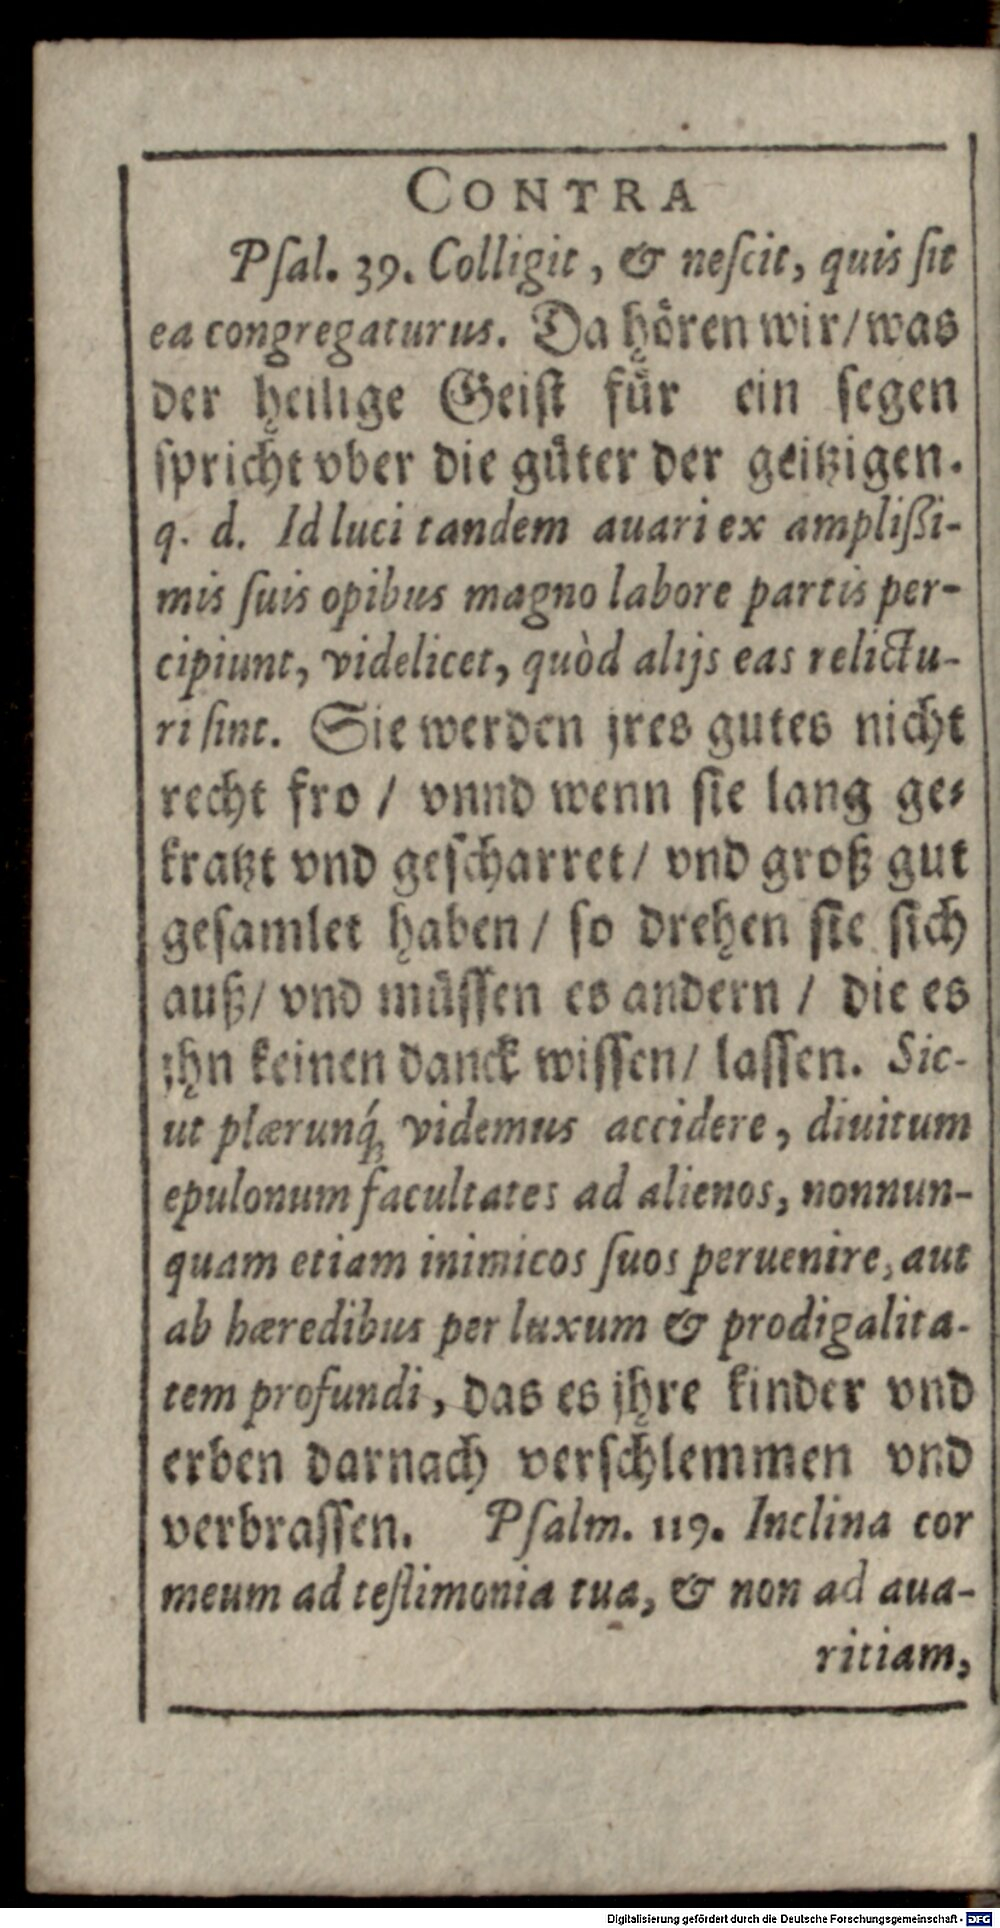 CONTRA
Pſal. 39. Colligit, & neſcit, quis ſit
ea congregaturus. Da hoͤren wir/ was
der heilige Geiſt fuͤr ein ſegen
ſpricht vber die guͤter der geitzigen.
q. d. Id luci tandem auari ex ampliſſi-
mis ſuis opibus magno labore partis per-
cipiunt, videlicet, quòd alijs eas relictu-
ri ſint. Sie werden jres gutes nicht
recht fro / vnnd wenn ſie lang ge-
kratzt vnd geſcharret/ vnd groß gut
geſamlet haben / ſo drehen ſie ſich
auß/ vnd muͤſſen es andern / die es
jhn keinen danck wiſſen/ laſſen. Sic-
ut plærunq́; videmus accidere, diuitum
epulonum facultates ad alienos, nonnun-
quam etiam inimicos ſuos peruenire, aut
ab hæredibus per luxum & prodigalita-
tem profundi, das es jhre kinder vnd
erben darnach verſchlemmen vnd
verbraſſen. Pſalm. 119. Inclina cor
meum ad teſtimonia tua, & non ad aua-
ritiam,
Digitalisierung gefördert durch die Deutsche Forschungsgemeinschaft - DFG